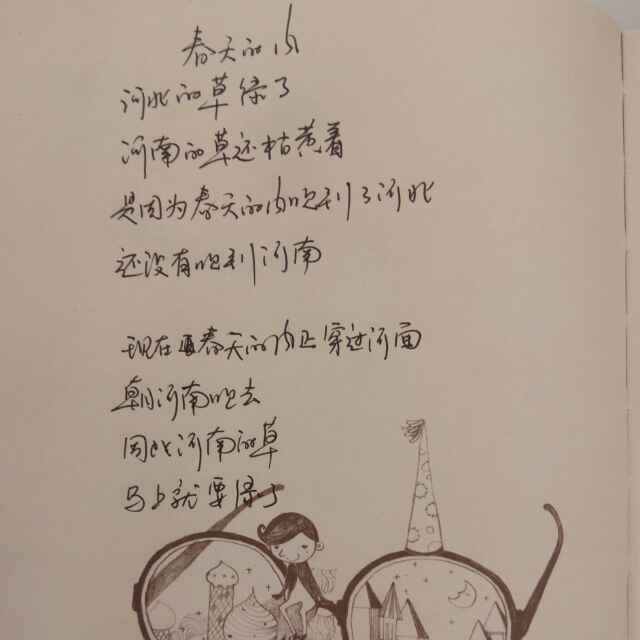 春天的风
河北的草绿了
河南的草还枯荒着
是因为春天的风吹到了河北
还没有吹到河南
现在春天的风正穿过河面
朝河南吹去
因此河南的草
马上就要绿了